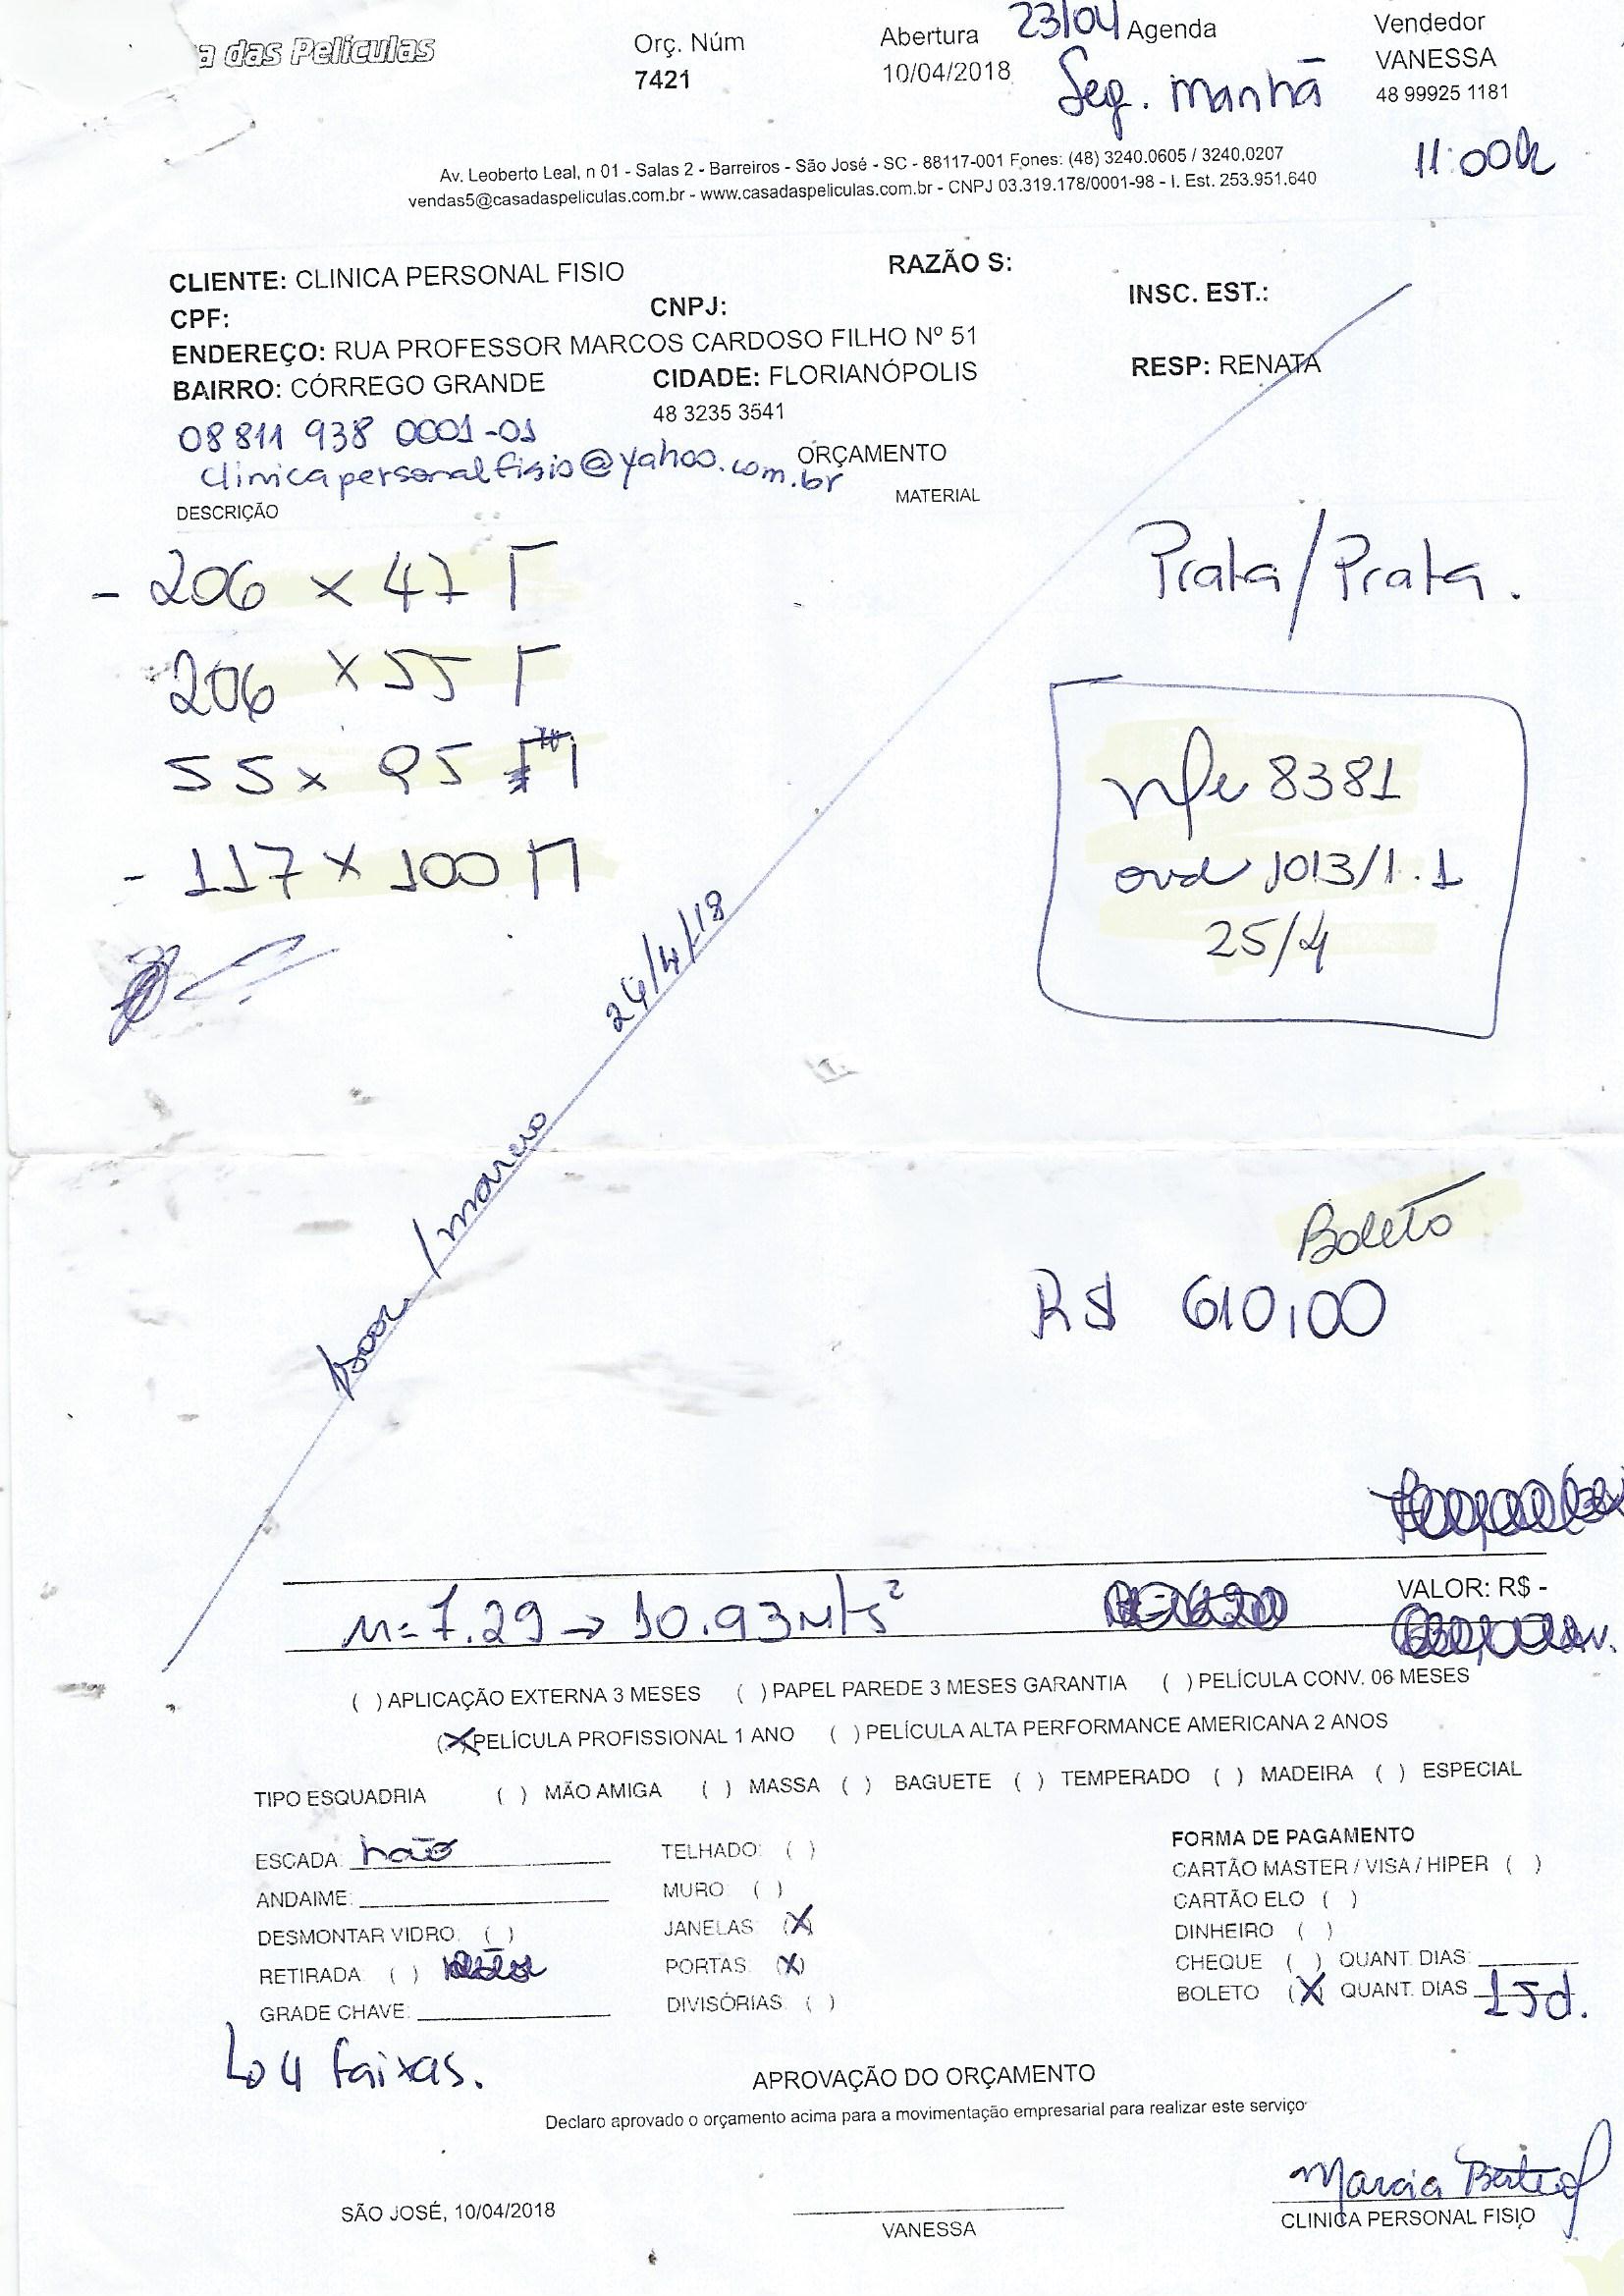 a das Películas
Orç. Núm
7421
Abertura
10/04/2018
23/04 Agenda
Seg. manhã
Vendedor
VANESSA
48 99925 1181
11:00h
Av. Leoberto Leal, n 01 - Salas 2 - Barreiros - São José - SC - 88117-001 Fones: (48) 3240.0605 / 3240.0207
vendas5@casadaspeliculas.com.br - www.casadaspeliculas.com.br - CNPJ 03.319.178/0001-98 - I. Est. 253.951.640
CLIENTE: CLINICA PERSONAL FISIO
RAZÃO S:
CPF:
CNPJ:
INSC. EST.:
ENDEREÇO: RUA PROFESSOR MARCOS CARDOSO FILHO Nº 51
BAIRRO: CÓRREGO GRANDE
CIDADE: FLORIANÓPOLIS
RESP: RENATA
48 3235 3541
08 811 938 0001-01
clinicapersonalfisio@yahoo.com.br
ORÇAMENTO
DESCRIÇÃO
MATERIAL
- 206 x 47
206 x 55
55 x 95
- 117 x 100
Prata/Prata.
nfe 8381
1013/1.1
25/4
24/4/18
Boleto
R$ 610,00
VALOR: R$ -
7.29 → 10.93
( ) APLICAÇÃO EXTERNA 3 MESES ( ) PAPEL PAREDE 3 MESES GARANTIA ( ) PELÍCULA CONV. 06 MESES
(X) PELÍCULA PROFISSIONAL 1 ANO ( ) PELÍCULA ALTA PERFORMANCE AMERICANA 2 ANOS
TIPO ESQUADRIA ( ) MÃO AMIGA ( ) MASSA ( ) BAGUETE ( ) TEMPERADO ( ) MADEIRA ( ) ESPECIAL
ESCADA: não
ANDAIME:
DESMONTAR VIDRO: ( )
RETIRADA: ( )
GRADE CHAVE:
4 faixas.
TELHADO: ( )
MURO: ( )
JANELAS: (X)
PORTAS: (X)
DIVISÓRIAS: ( )
FORMA DE PAGAMENTO
CARTÃO MASTER / VISA / HIPER ( )
CARTÃO ELO ( )
DINHEIRO ( )
CHEQUE ( ) QUANT. DIAS:
BOLETO (X) QUANT. DIAS 15d.
APROVAÇÃO DO ORÇAMENTO
Declaro aprovado o orçamento acima para a movimentação empresarial para realizar este serviço
SÃO JOSÉ, 10/04/2018
VANESSA
Marcia
CLINICA PERSONAL FISIO